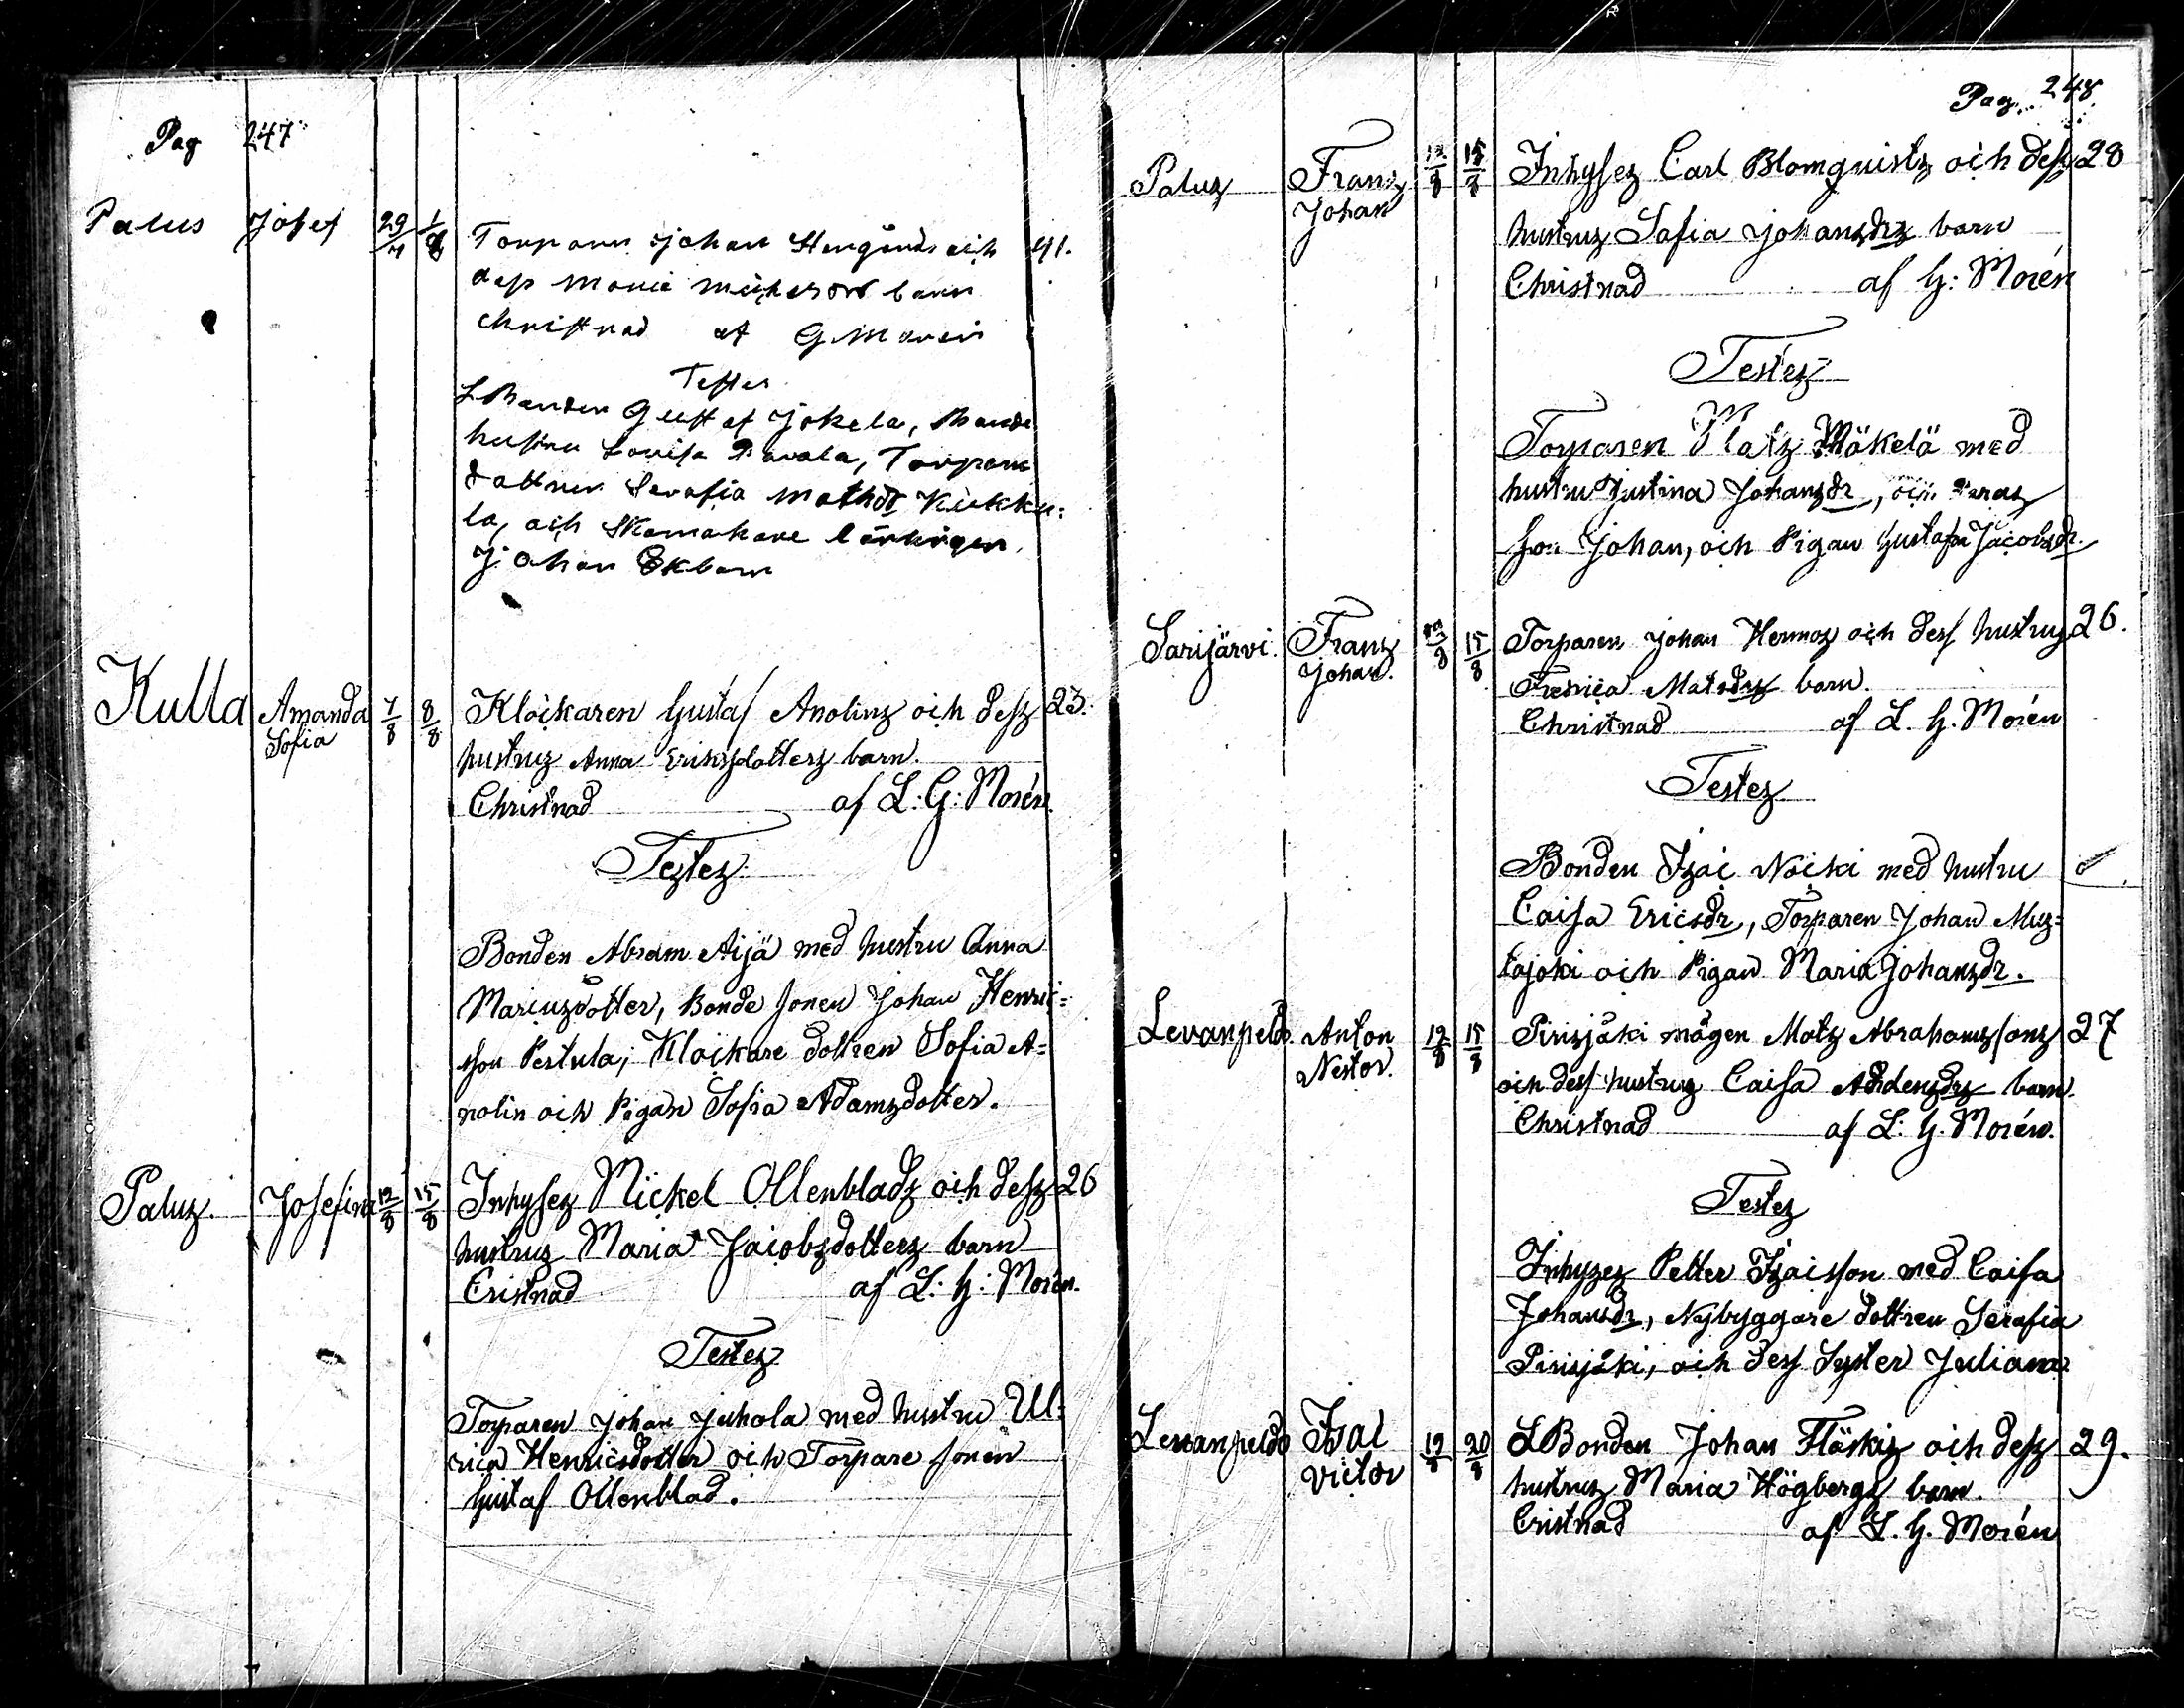 Pag 247
Palus Josef 29/7 1/8 Torparn Johan Stengårds och 41.
dess Maria barn
Christnad af G Morén
Testes
LBonden Gustaf Jokela, Bonde
hustru Lovisa Pavala, Torpare
dottren Serafia Mathsdr Kiukku=
la, och Skomakare lärlingen
Johan Ekbom
Kulla Amanda 7/8 8/8 Klockaren Gustaf Anolins och dess 23.
Sofia hustrus Anna Ericsdotters barn.
Christnad af L: G: Morén.
Testes
Bonden Abram Äijä med hustru Anna
Mariusdotter, Bonde sonen Johan Henric=
son Pertula, Klockare dottren Sofia A=
nolin och Pigan Sofia Adamsdotter.
Palus. Josefina 12/8 15/8 Inhyses Mickel Ollenblads och dess 26
hustrus Maria Jacobsdotters barn
Cristnad af L: G: Morén.
Testes
Torparen Johan Juhola med hustru Ul=
rica Henricsdotter och Torpare sonen
Gustaf Ollenblad.
Pag. 248.
Palus Frans 12/8 15/8 Inhyses Carl Blomqvists och dess 28
Johan hustrus Sofia Johansdrs barn
Christnad af G: Morén
Testes
Torparen Mats Mäkelä med
hustru Justina Johansdr, och deras
son Johan, och Pigan Gustafva Jacobsdr.
Sarijärvi. Frans 15/8 Torparen Johan Hermos och dess hustrus 26.
Johan. Fredrica Matsdrs barn.
Christnad af L. G. Morén
Testes
Bonden Isac Näcki med hustru
Caisa Ericsdr, Torparen Johan Mus=
tajoki och Pigan Maria Johansdr.
Levanpeldo. Anton 12/8 15/8 Pirisjåki mågen Mats Abrahamssons 27
Nestor. och dess hustrus Caisa barn.
Christnad af L: G. Morén.
Testes
Inhyses Petter Isacsson med Caisa
Johansdr, Nybyggare dottren Serafia
Pirisjåki, och dess Syster Juliana.
Levanpeldo Isac 19/8 20/8 LBonden Johan Fläskis och dess 29.
Victor hustrus Maria Högbergs barn.
Cristnad af L. G. Morén